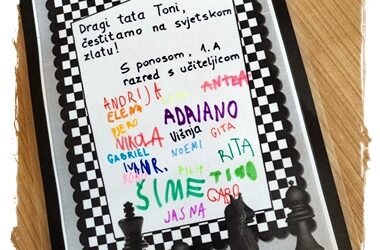 Dragi tata Toni,
čestitamo na svjetskom
zlatu!
S ponosom, 1.A
razred s učiteljicom
ANDRIJA ANTEA
ELENA ADRIANO
PJERO
NIKOLA Višnja GITA
GABRIEL NOEMI RITA
IVAN R.
FILIP TINO
ŠIME GABO
JASNA